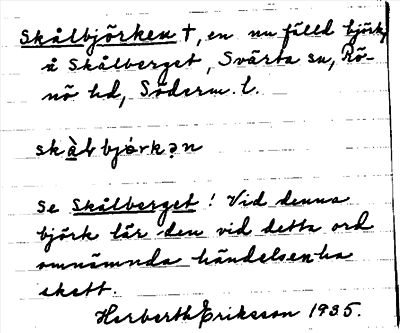 Skålbjörken †, en nu fälld björk,
å Skålberget, Svärta sn, Rö-
nö hd, Söderm. l.
skàlbjörkən
Se Skålberget! Vid denna
björk lär den vid detta ord
omnämnda händelsen ha
skett.
Herberth Eriksson 1935.